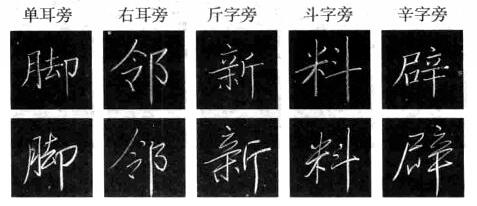 单耳旁 右耳旁 斤字旁 斗字旁 辛字旁
脚 邻 新 料 辟
脚 邻 新 料 辟